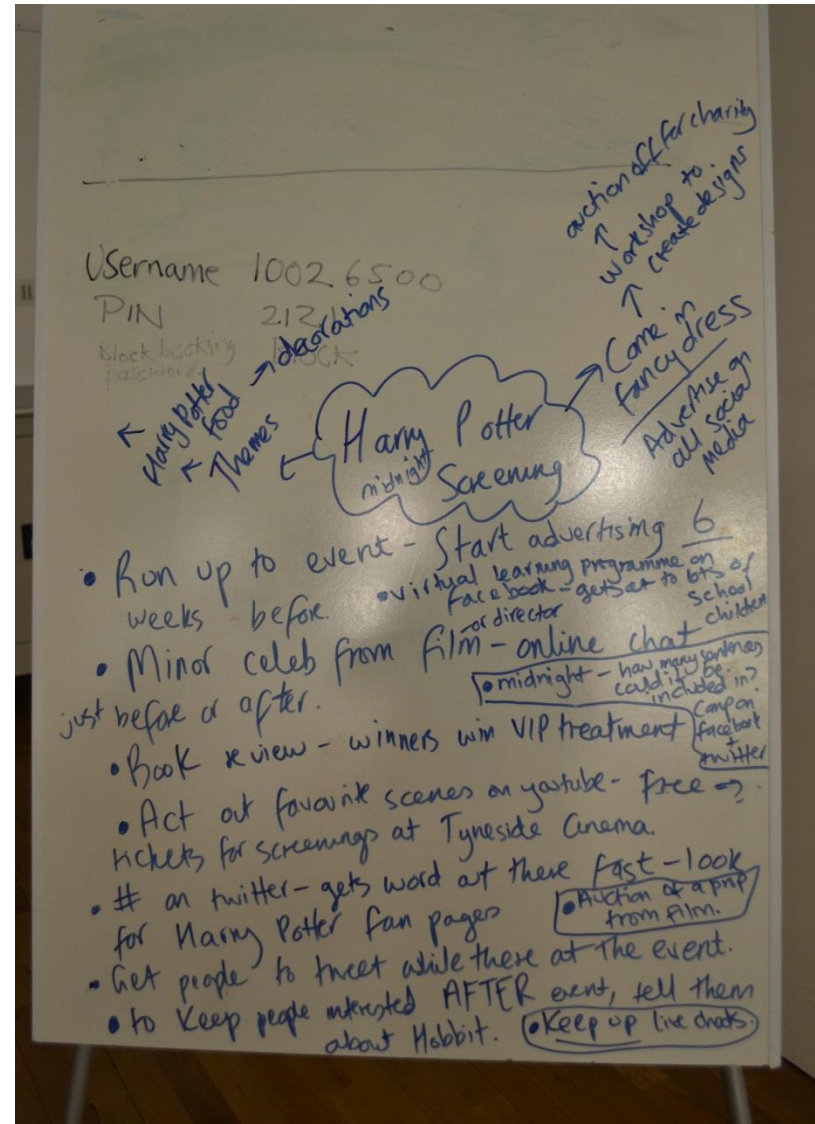 Username 1002 6500
PIN 212
Block booking BLOCK
password
auction off for charity
↑
workshop to
create designs
↑
Come in
fancy dress
Advertise on
all social
media
→ decorations
Harry Potter
food
Themes
Harry Potter
midnight
Screening
• Run up to event - Start advertising 6
weeks before.
• virtual learning programme on
facebook - gets set to bts of
school
children
• Minor celeb from film - online chat
or director
just before or after.
• midnight - how many sentences
could it be
included in?
Camp on
facebook
+
twitter
• Book review - winners win VIP treatment
• Act out favourite scenes on youtube - free →
tickets for screenings at Tyneside Cinema.
• # on twitter - gets word out there fast - look
for Harry Potter fan pages
• Auction of a prop
from film.
• Get people to tweet while there at the event.
• to keep people interested AFTER event, tell them
about Hobbit.
• Keep up live chats.